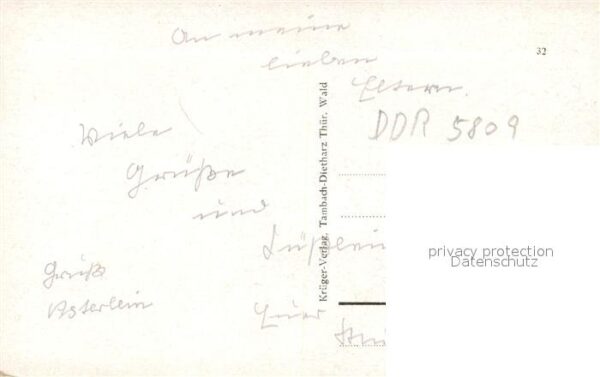 An meine
lieben
Eltern.
32
DDR 5809
Viele
Grüße
und
Euer
Gruß
Krüger-Verlag, Tambach-Dietharz Thür. Wald
privacy protection
Datenschutz